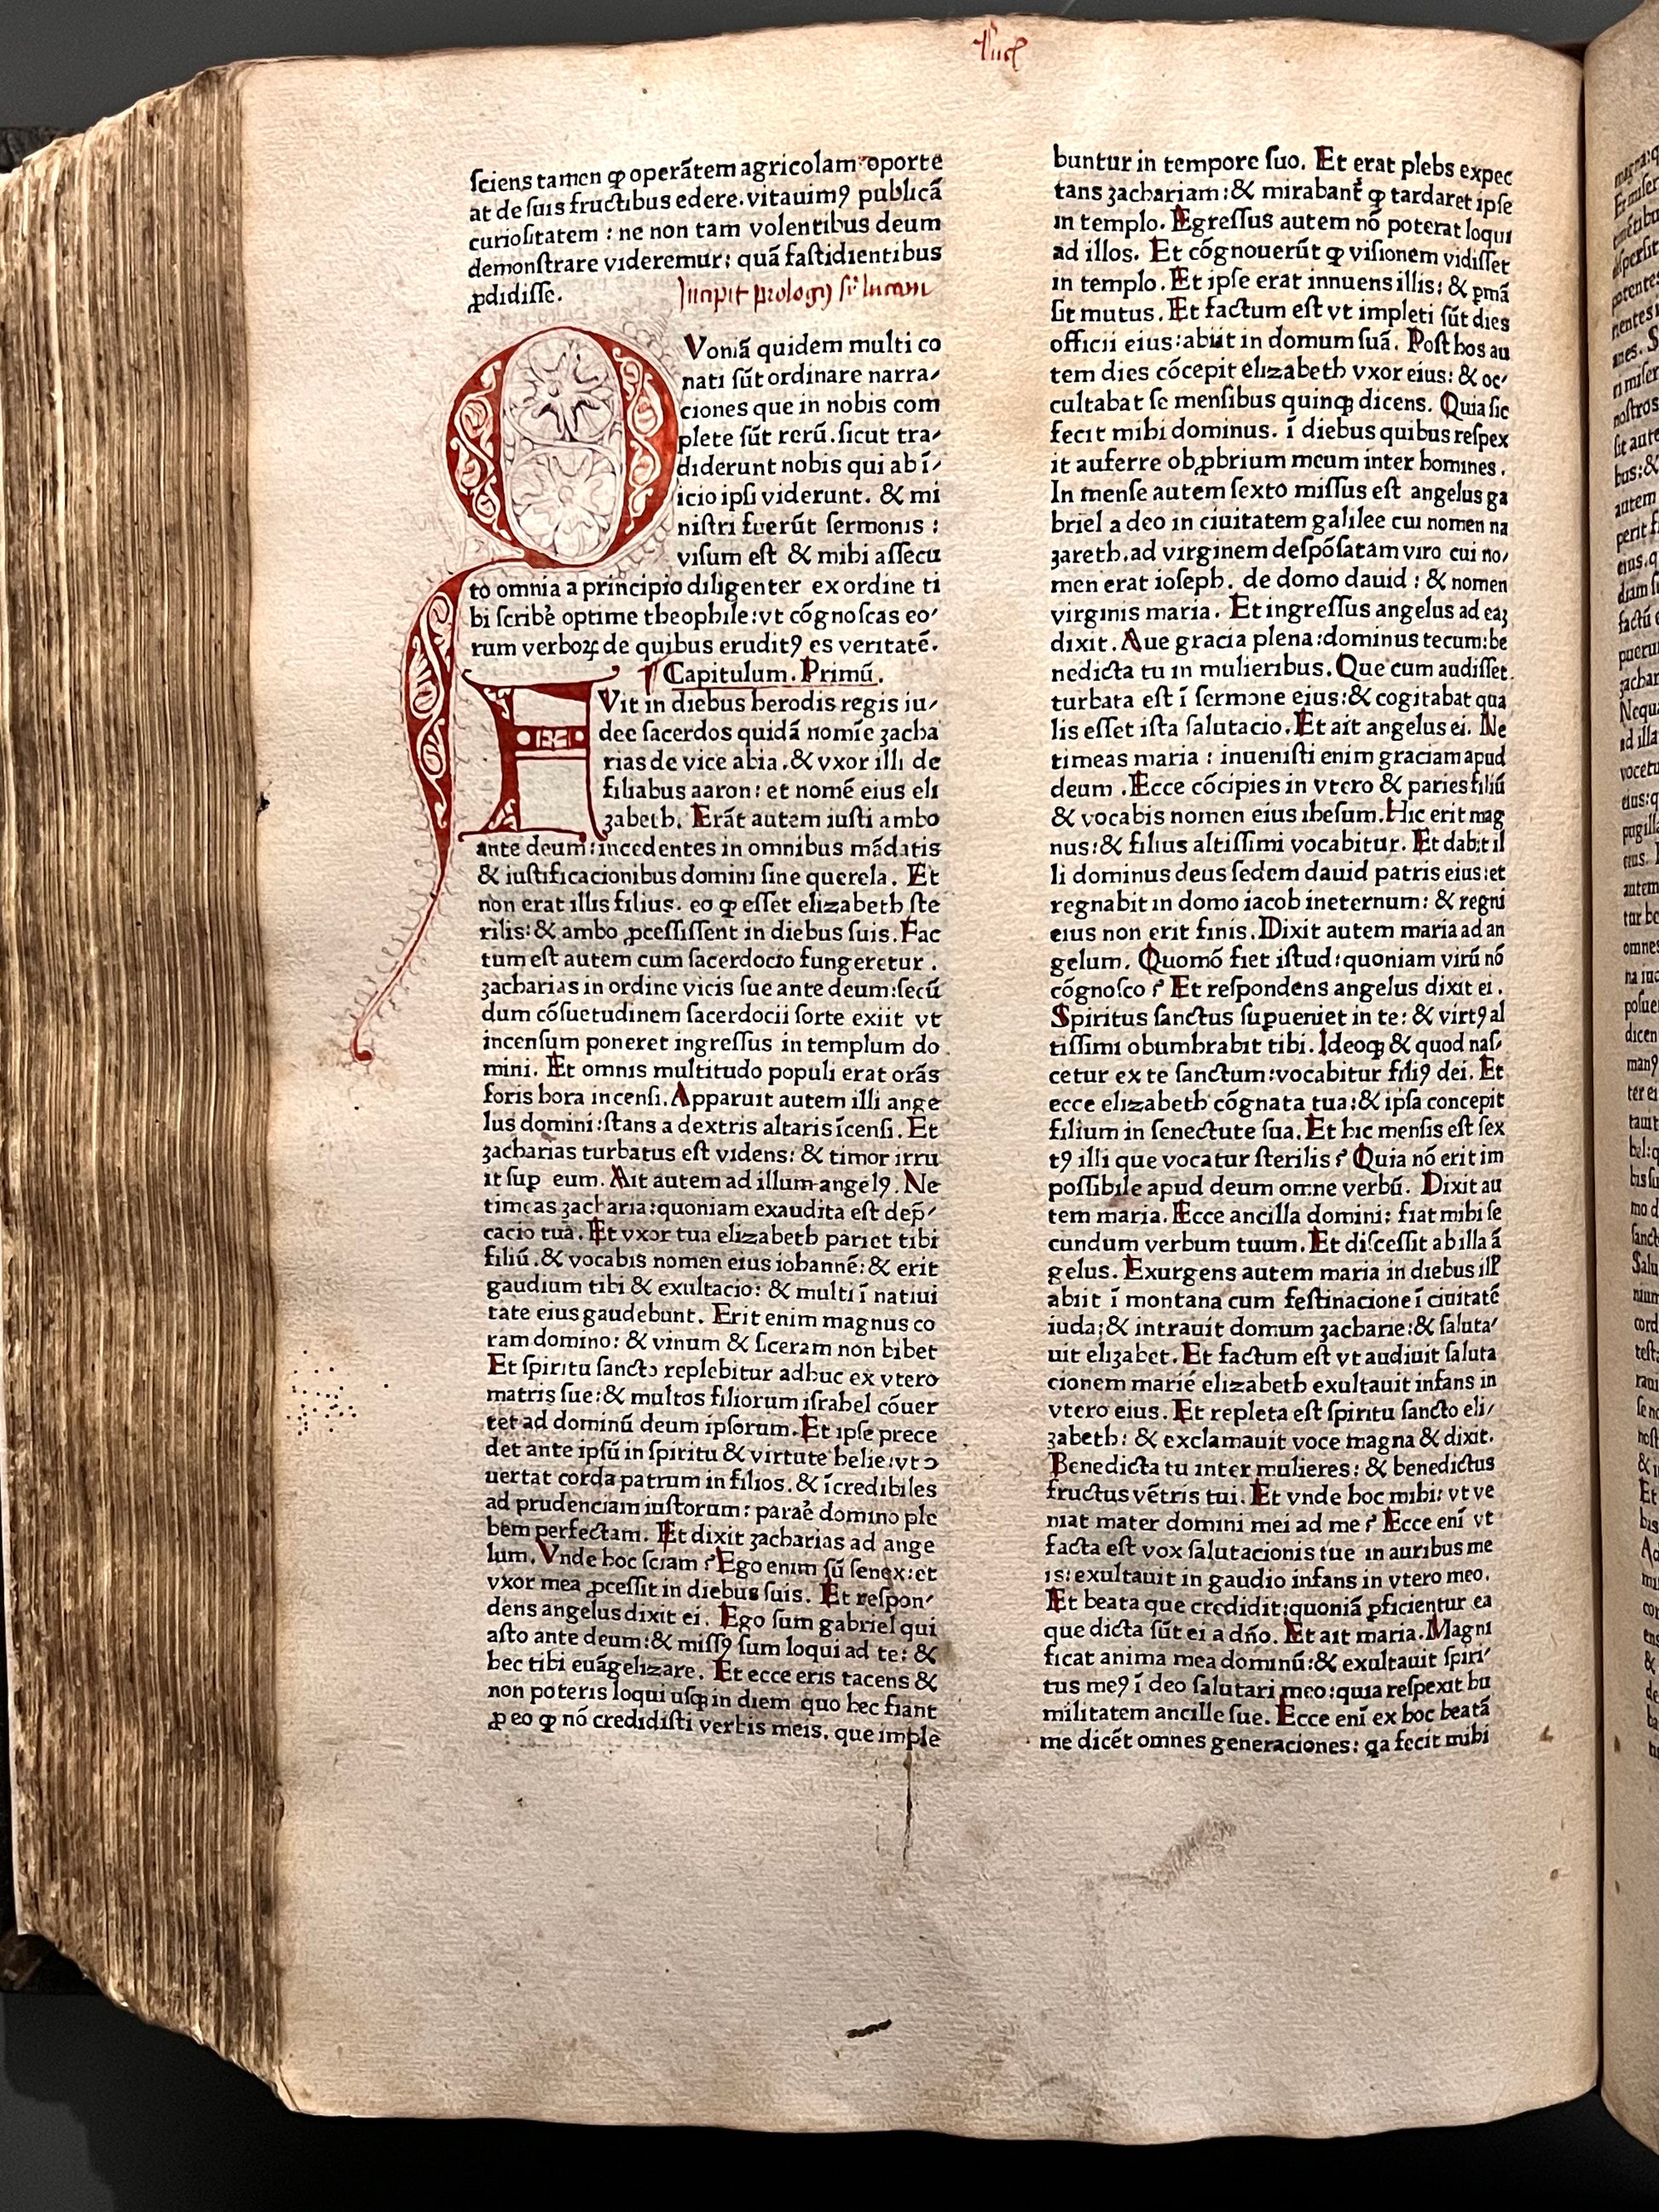 sciens tamen ꝙ operātem agricolam oporte
at de suis fructibus edere. vitauimꝰ publicā
curiositatem : ne non tam volentibus deum
demonstrare videremur: quā fastidientibus
ꝓdidisse.
Incipit prologꝰ
Voniā quidem multi co
nati sūt ordinare narra/
ciones que in nobis com
plete sūt rerū. sicut tra/
diderunt nobis qui ab ī/
icio ipsi viderunt. & mi
nistri fuerūt sermonis :
visum est & mihi assecu
to omnia a principio diligenter ex ordine ti
bi scribe᷒ optime theophile: vt cōgnoscas eo/
rum verboꝝ de quibus eruditꝰ es veritatē.
¶ Capitulum. Primū.
FVit in diebus herodis regis iu/
dee sacerdos quidā nomīe zacha
rias de vice abia. & vxor illi de
filiabus aaron: et nomē eius eli
zabeth. Erāt autem iusti ambo
ante deum: incedentes in omnibus mādatis
& iustificacionibus domini sine querela. Et
non erat illis filius. eo ꝙ esset elizabeth ste
rilis: & ambo ꝓcessissent in diebus suis. Fac
tum est autem cum sacerdocio fungeretur .
zacharias in ordine vicis sue ante deum: secū
dum cōsuetudinem sacerdocii sorte exiit vt
incensum poneret ingressus in templum do
mini. Et omnis multitudo populi erat orās
foris hora incensi. Apparuit autem illi ange
lus domini: stans a dextris altaris īcensi. Et
zacharias turbatus est videns: & timor irru
it sup eum. Ait autem ad illum angelꝰ. Ne
timeas zacharia: quoniam exaudita est dep̄/
cacio tuā. Et vxor tua elizabeth pariet tibi
filiū. & vocabis nomen eius iohannē: & erit
gaudium tibi & exultacio: & multi ī natiui
tate eius gaudebunt. Erit enim magnus co
ram domino: & vinum & siceram non bibet
Et spiritu sancto replebitur adhuc ex vtero
matris sue: & multos filiorum israhel cōuer
tet ad dominū deum ipsorum. Et ipse prece
det ante ipsū in spiritu & virtute helie: vt ꝯ
uertat corda patrum in filios. & īcredibiles
ad prudenciam iustorum: parae᷒ domino ple
bem perfectam. Et dixit zacharias ad ange
lum. Vnde hoc sciam ? Ego enim sū senex: et
vxor mea ꝓcessit in diebus suis. Et respon/
dens angelus dixit ei. Ego sum gabriel qui
asto ante deum: & missꝰ sum loqui ad te: &
hec tibi euāgelizare. Et ecce eris tacens &
non poteris loqui usqꝫ in diem quo hec fiant
ꝓ eo ꝙ nō credidisti verbis meis. que imple
buntur in tempore suo. Et erat plebs expec
tans zachariam: & mirabant᷑ ꝙ tardaret ipse
in templo. Egressus autem nō poterat loqui
ad illos. Et cōgnouerūt ꝙ visionem vidisset
in templo. Et ipse erat innuens illis: & ꝑmā
sit mutus. Et factum est vt impleti sūt dies
officii eius: abiit in domum suā. Post hos au
tem dies cōcepit elizabeth vxor eius: & oc/
cultabat se mensibus quinqꝫ dicens. Quia sic
fecit mihi dominus. ī diebus quibus respex
it auferre obꝓbrium meum inter homines .
In mense autem sexto missus est angelus ga
briel a deo in ciuitatem galilee cui nomen na
zareth. ad virginem despōsatam viro cui no/
men erat ioseph. de domo dauid : & nomen
virginis maria. Et ingressus angelus ad eaꝫ
dixit. Aue gracia plena: dominus tecum: be
nedicta tu in mulieribus. Que cum audisset.
turbata est ī sermone eius: & cogitabat qua
lis esset ista salutacio. Et ait angelus ei. Ne
timeas maria : inuenisti enim graciam apud
deum . Ecce cōcipies in vtero & paries filiū
& vocabis nomen eius ihesum. Hic erit mag
nus: & filius altissimi vocabitur. Et dabit il
li dominus deus sedem dauid patris eius: et
regnabit in domo iacob ineternum: & regni
eius non erit finis. Dixit autem maria ad an
gelum. Quomō fiet istud: quoniam virū nō
cōgnosco ? Et respondens angelus dixit ei .
Spiritus sanctus suꝑueniet in te: & virtꝰ al
tissimi obumbrabit tibi. Ideoqꝫ & quod nas/
cetur ex te sanctum: vocabitur filiꝰ dei. Et
ecce elizabeth cōgnata tua: & ipsa concepit
filium in senectute sua. Et hic mensis est sex
tꝰ illi que vocatur sterilis ? Quia nō erit im
possibile apud deum omne verbū. Dixit au
tem maria. Ecce ancilla domini: fiat mihi se
cundum verbum tuum. Et discessit ab illa ā
gelus. Exurgens autem maria in diebus illꝭ
abiit ī montana cum festinacione ī ciuitatē
iuda: & intrauit domum zacharie: & saluta/
uit elizabet. Et factum est vt audiuit saluta
cionem marie elizabeth exultauit infans in
vtero eius. Et repleta est spiritu sancto eli/
zabeth: & exclamauit voce magna & dixit.
Benedicta tu inter mulieres: & benedictus
fructus vētris tui. Et vnde hoc mihi: vt ve
niat mater domini mei ad me ? Ecce enī vt
facta est vox salutacionis tue in auribus me
is: exultauit in gaudio infans in vtero meo.
Et beata que credidit: quoniā ꝑficientur ea
que dicta sūt ei a dño. Et ait maria. Magni
ficat anima mea dominū: & exultauit spiri/
tus meꝰ ī deo salutari meo: quia respexit hu
militatem ancille sue. Ecce enī ex hoc beatā
me dicēt omnes generaciones: qa fecit mihi